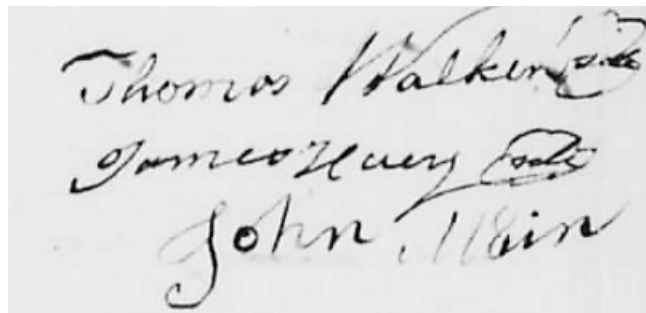 Thomas Walker
James Huey
John Main